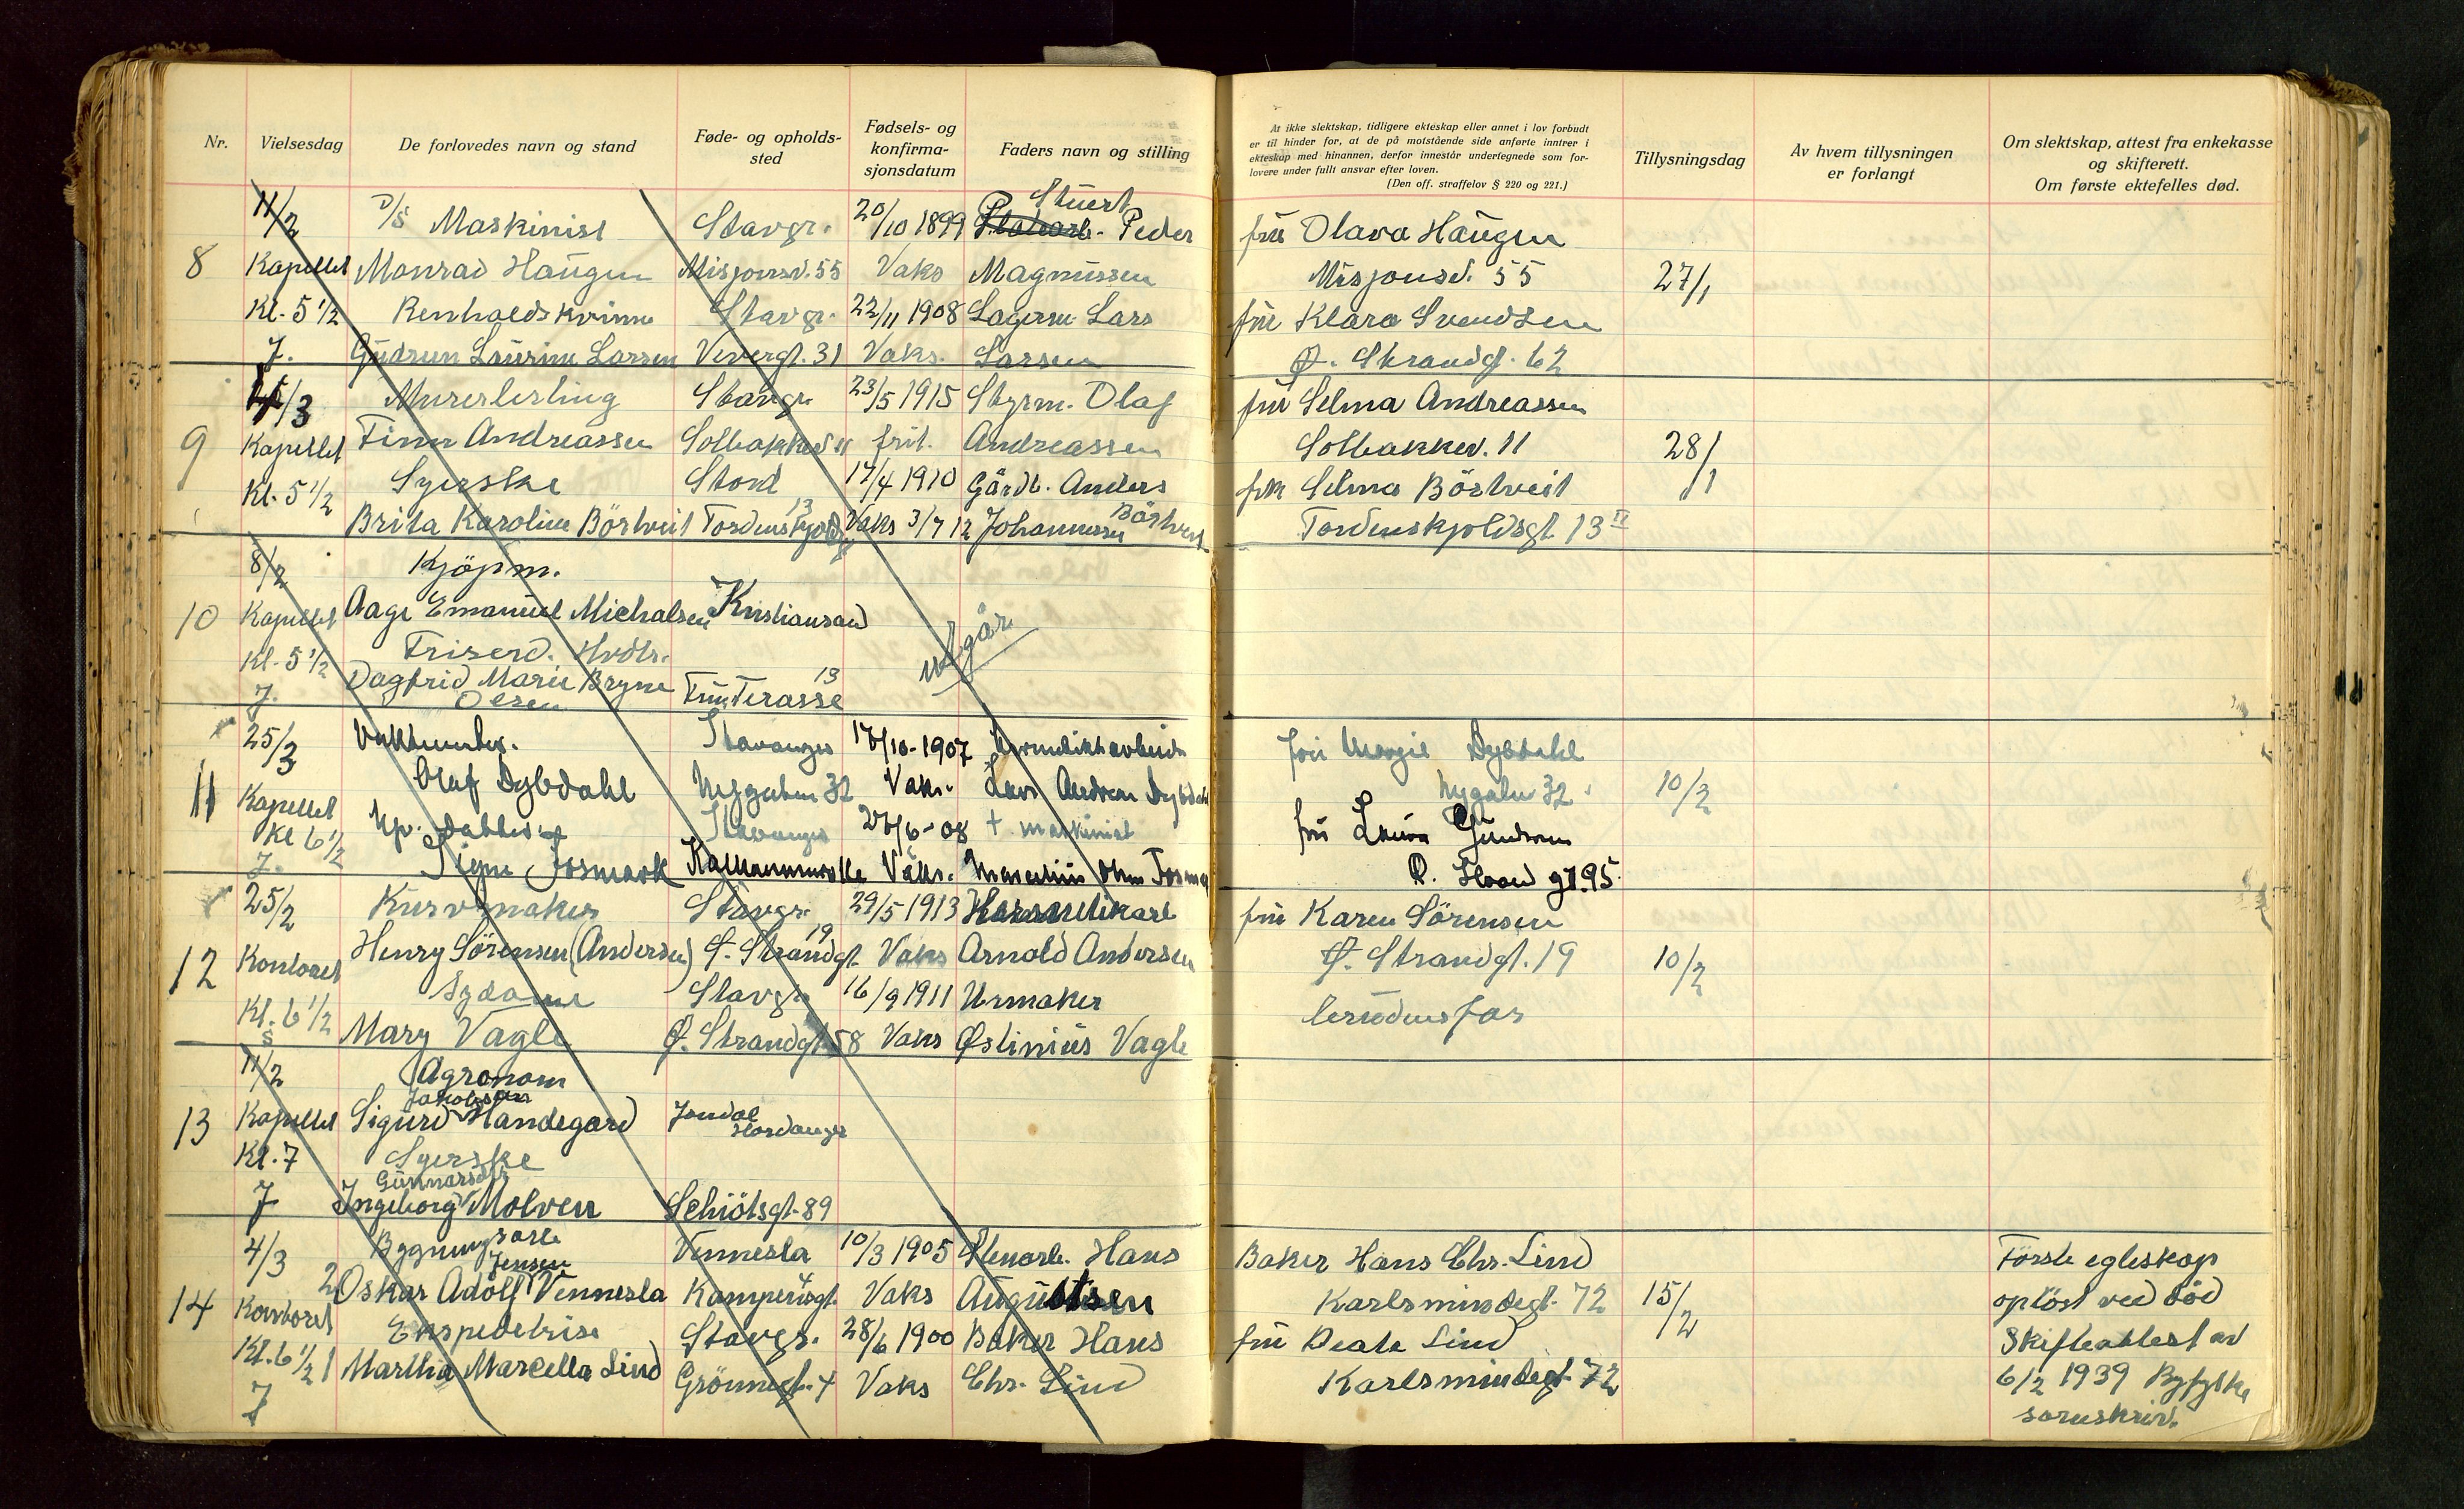 Nr.
Vielsesdag
De forlovedes navn og stand
Føde- og opholds-
sted
Fødsels- og
konfirma-
sjonsdatum
Faders navn og stilling
At ikke slektskap, tidligere ekteskap eller annet i lov forbudt
er til hinder for, at de på motstående side anførte inntrer i
ekteskap med hinannen, derfor innestår undertegnede som for-
lovere under fullt ansvar efter loven.
(Den off. straffelov § 220 og 221.)
Tillysningsdag
Av hvem tillysningen
er forlangt
Om slektskap, attest fra enkekasse
og skifterett.
Om første ektefelles død.
Stuert
11/2 D/S Maskinist Stavgr. 20/10 1899 Peder fru Olava Haugen
8 Kapellet Monrad Haugen Misjonsv. 55 Vaks Magnussen Misjonsv. 55 27/1
Kl. 5 1/2 Renholdskvinne Stavgr. 22/11 1908 Lagerm. Lars fru Klara Svendsen
J. Gudrun Laurine Larsen Vevergt. 31 Vaks. Larsen Ø. Strandgt. 62
/3 Murerlerling Stavgr. 23/5 1915 Styrm. Olaf fru Selma Andreassen
9 Kapellet Finn Andreassen Solbakkev. 11 frit. Andreassen Solbakkev. 11 28/1
Kl. 5 1/2 Syerske Stord 17/4 1910 Gårdb. Anders frk Selma Börtveit
Brita Karoline Börtveit Tordenskjoldsgt 13 Vaks 3/7 12 Johannessen Börtveit Tordenskjoldsgt. 13 II
8/2 Kjöpm.
10 Kapellet Aage Emanuel Michalsen Kristiansand
Kl. 5 1/2 Friserd. Hvdts.
J. Dagfrid Marie Bryne Olsen Fru Terasse 13
utgår
25/3 Stavanger 17/10-1907 fru Margit Dybdahl
11 Kapellet Olaf Dybdahl Nygaten 32 Vaks. Lars Andreas Dybdahl Nygaten 32 10/2
Kl 6 1/2 Stavanger 27/6-08 + maskinist fru Laura Gundersen
J. Signe Tosmark Vaks. Ø. Strand gt. 95
25/2 Kurvmaker Stavgr. 29/5 1913 Hermetikarb fru Karen Sörensen
12 Kontoret Henry Sörensen (Andersen) Ø. Strandgt. 19 Vaks Arnold Andersen Ø. Strandgt. 19 10/2
Kl. 6 1/2 Sydame Stavgr. 16/9 1911 Urmaker brudens far
S Mary Vagle Ø. Strandgt 58 Vaks Østinius Vagle
11/2 Agronom
Jakobsen
13 Kapellet Sigurd Handegard Jondal Hardanger
Kl. 7 Syerske
Gunnarsdtr
J Ingeborg Molven Schiötsgt. 89
4/3 Bygningsarb Vennesla 10/3 1905 Stenarb. Hans Baker Hans Chr. Lind Förste egteskap
Jensen
14 Kontoret 2 Oskar Adolf Vennesla Kamperigt. 4 Vaks Augustsen Karlsmindegt. 72 15/2 oplöst ved död
Kl. 6 1/2 Ekspeditrise Stavgr. 28/6 1900 Baker Hans fru Beate Lind Skifteattest av
J 1 Martha Marcella Lind Grönnegt. 4 Vaks Chr. Lind Karlsmindegt. 72 6/2 1939 Ryfylke
sorenskriv.